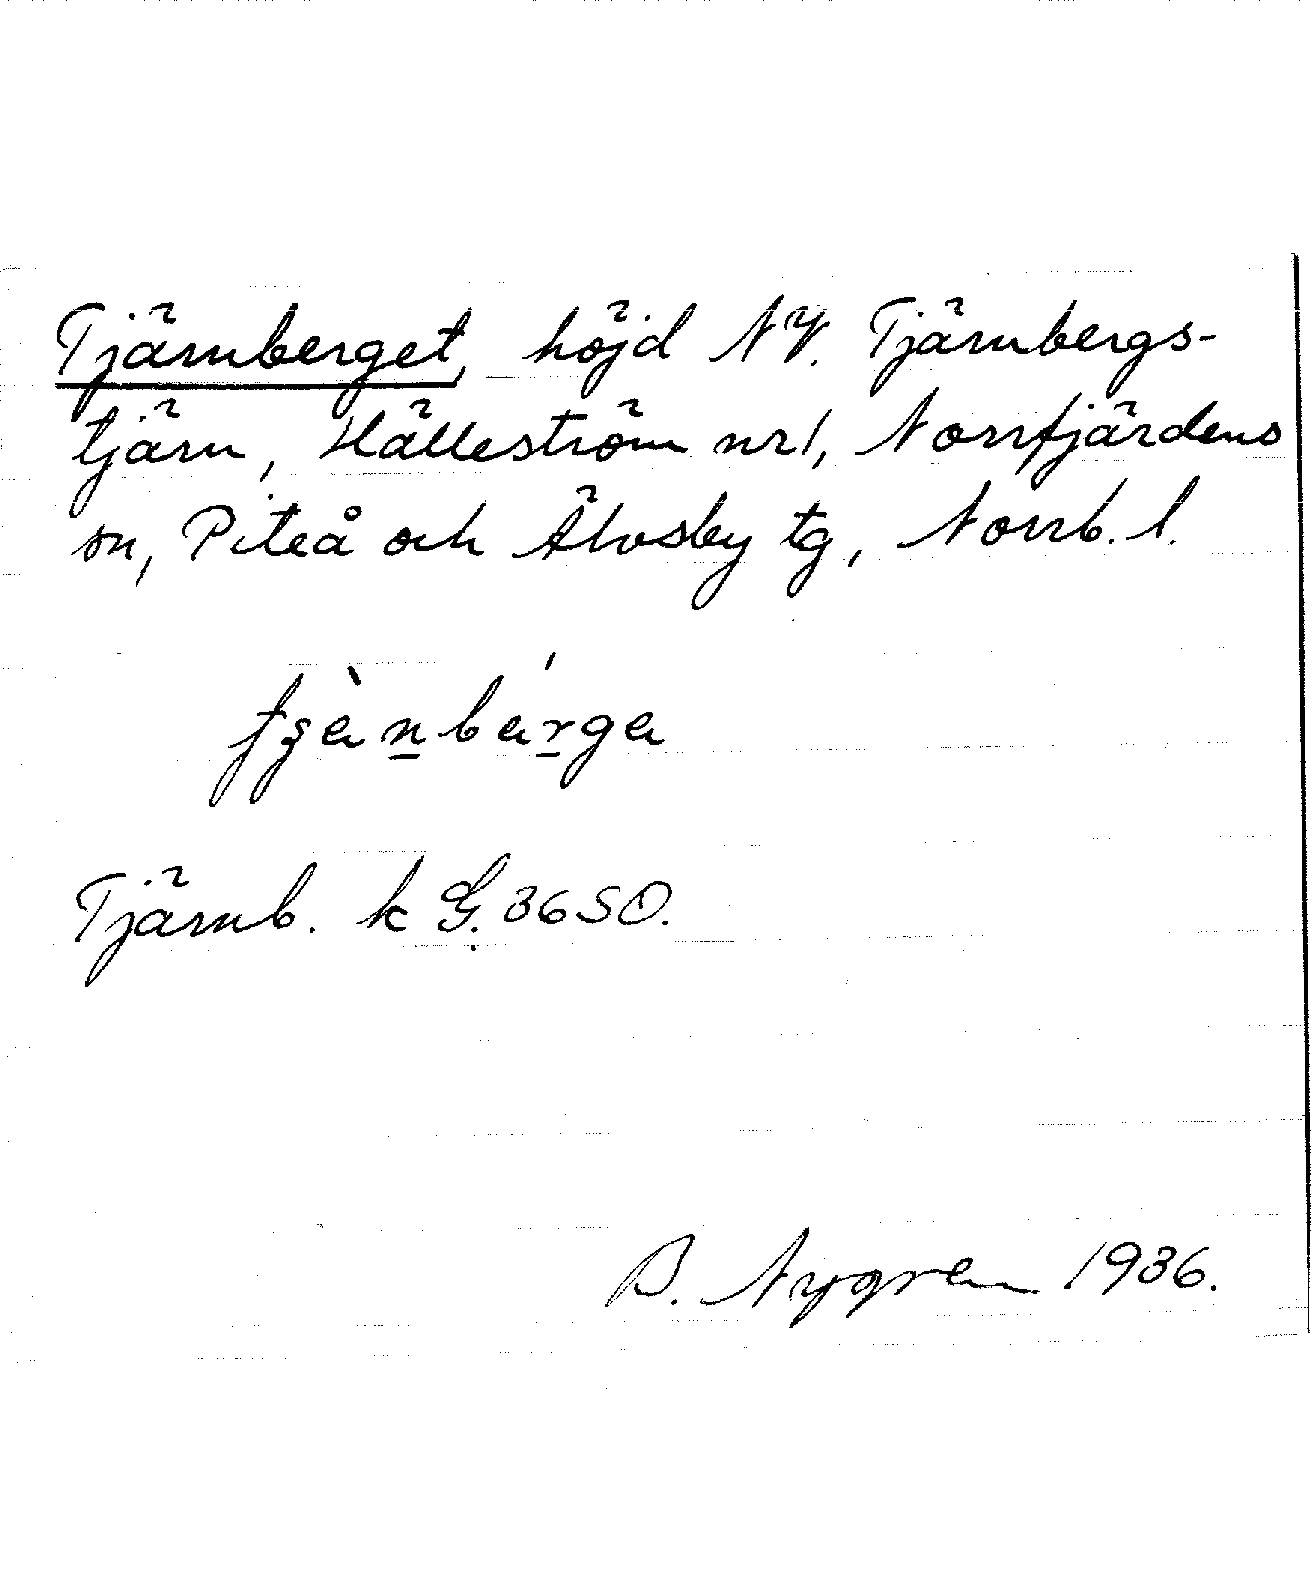 Tjärnberget, höjd NV. Tjärnbergs-
tjärn, Hälleström nr 1, Norrfjärdens
sn, Piteå och Älvsby tg, Norrb. l.
Tjärnb. k G. 36 SO.
B. Nygren 1936.